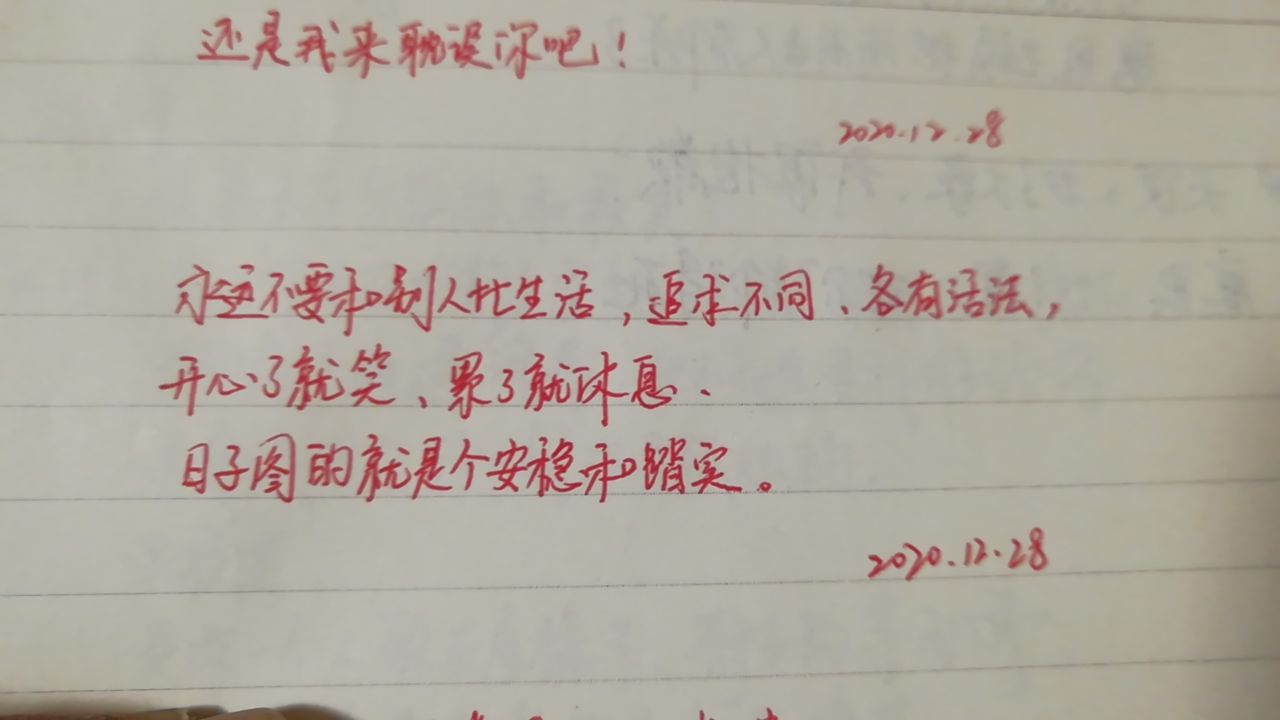 还是我来耽误你吧！
2020.12.28
永远不要和别人比生活，追求不同、各有活法，
开心了就笑、累了就休息.
日子图的就是个安稳和踏实。
2020.12.28